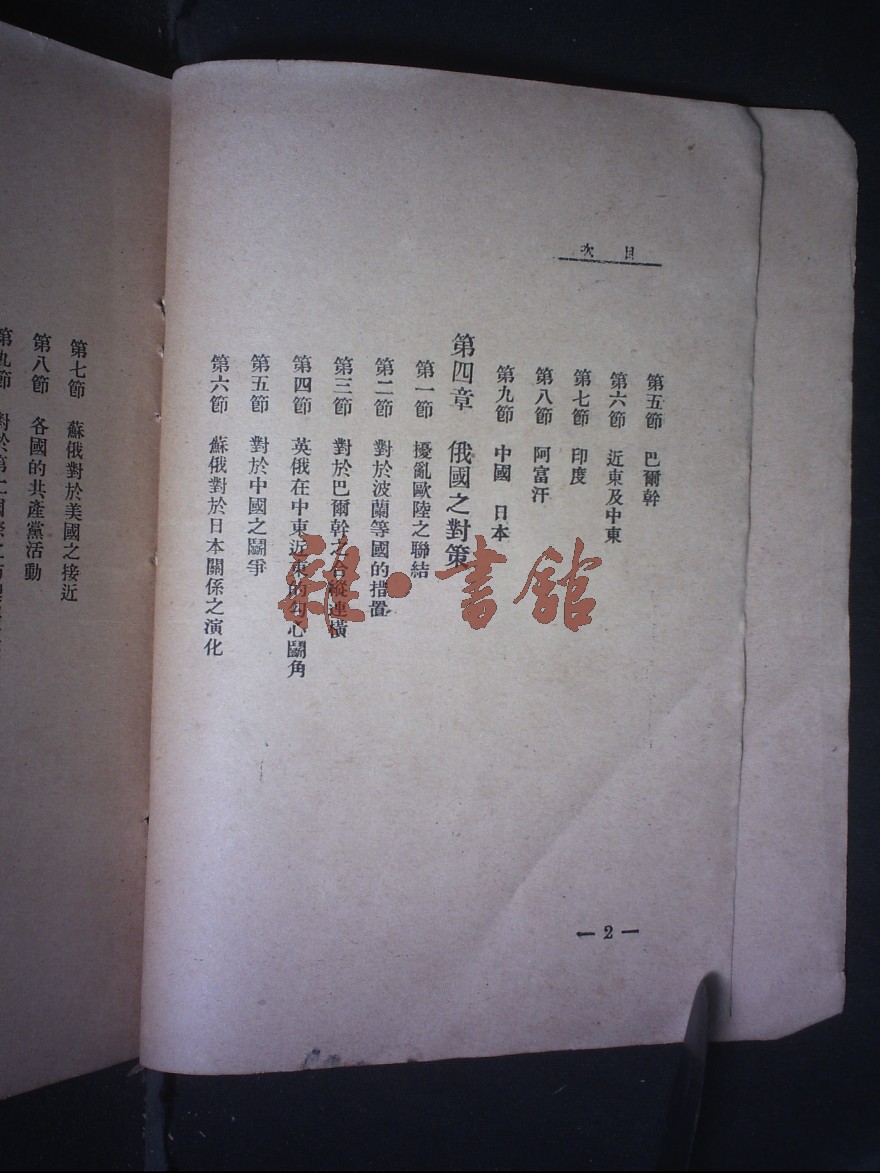 目次
第五節　巴爾幹
第六節　近東及中東
第七節　印度
第八節　阿富汗
第九節　中國　日本
第四章　俄國之對策
第一節　擾亂歐陸之聯結
第二節　對於波蘭等國的措置
第三節　對於巴爾幹之合縱連橫
第四節　英俄在中東近東的勾心鬭角
第五節　對於中國之鬭爭
第六節　蘇俄對於日本關係之演化
— 2 —
第七節　蘇俄對於美國之接近
第八節　各國的共產黨活動
第九節　對於第二國際之
雜·書館